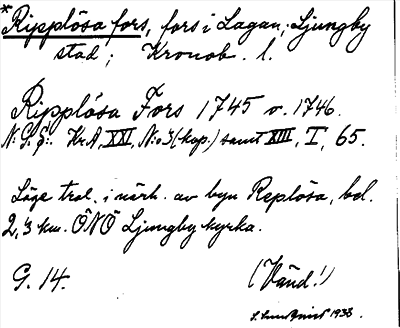 *Ripplösa fors, fors i Lagan; Ljungby
stad; Kronob. l.
Ripplösa Fors 1745 o. 1746.
Kr. A, XXI, N:o 3 (kop.) samt XIII, I, 65.
Läge trol. i närh. av byn Replösa, bel.
2,3 km. ÖNÖ Ljungby kyrka.
G. 14. (Vänd!)
1938